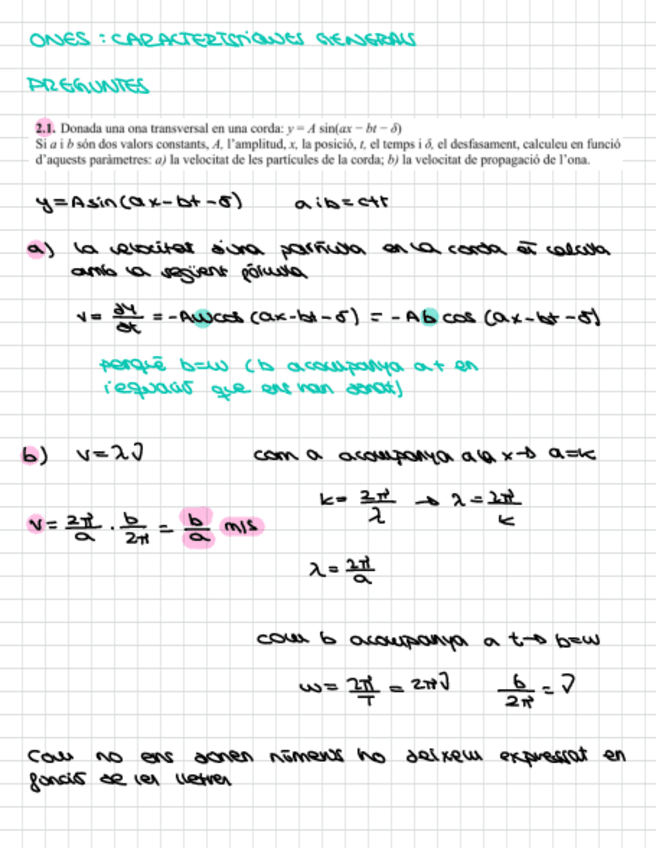 ONES : CARACTERÍSTIQUES GENERALS
PREGUNTES
2.1. Donada una ona transversal en una corda: y = A sin(ax − bt − δ)
Si a i b són dos valors constants, A, l'amplitud, x, la posició, t, el temps i δ, el desfasament, calculeu en funció
d'aquests paràmetres: a) la velocitat de les partícules de la corda; b) la velocitat de propagació de l'ona.
y=Asin(ax-bt-δ) a i b = ctt
a) La velocitat d'una partícula en la corda es calcula
amb la següent fórmula
v = ∂y/∂t = -Aωcos (ax-bt-δ) = -Ab cos (ax-bt-δ)
perquè b=ω (b acompanya a t en
l'equació que ens han donat)
b) v=λν com a acompanya a la x → a=k
k = 2π/λ → λ = 2π/k
v = 2π/a · b/2π = b/a m/s
λ = 2π/a
com b acompanya a t → b=ω
ω = 2π/T = 2πν b/2π = ν
Com no ens donen números ho deixem expressat en
funció de les lletres